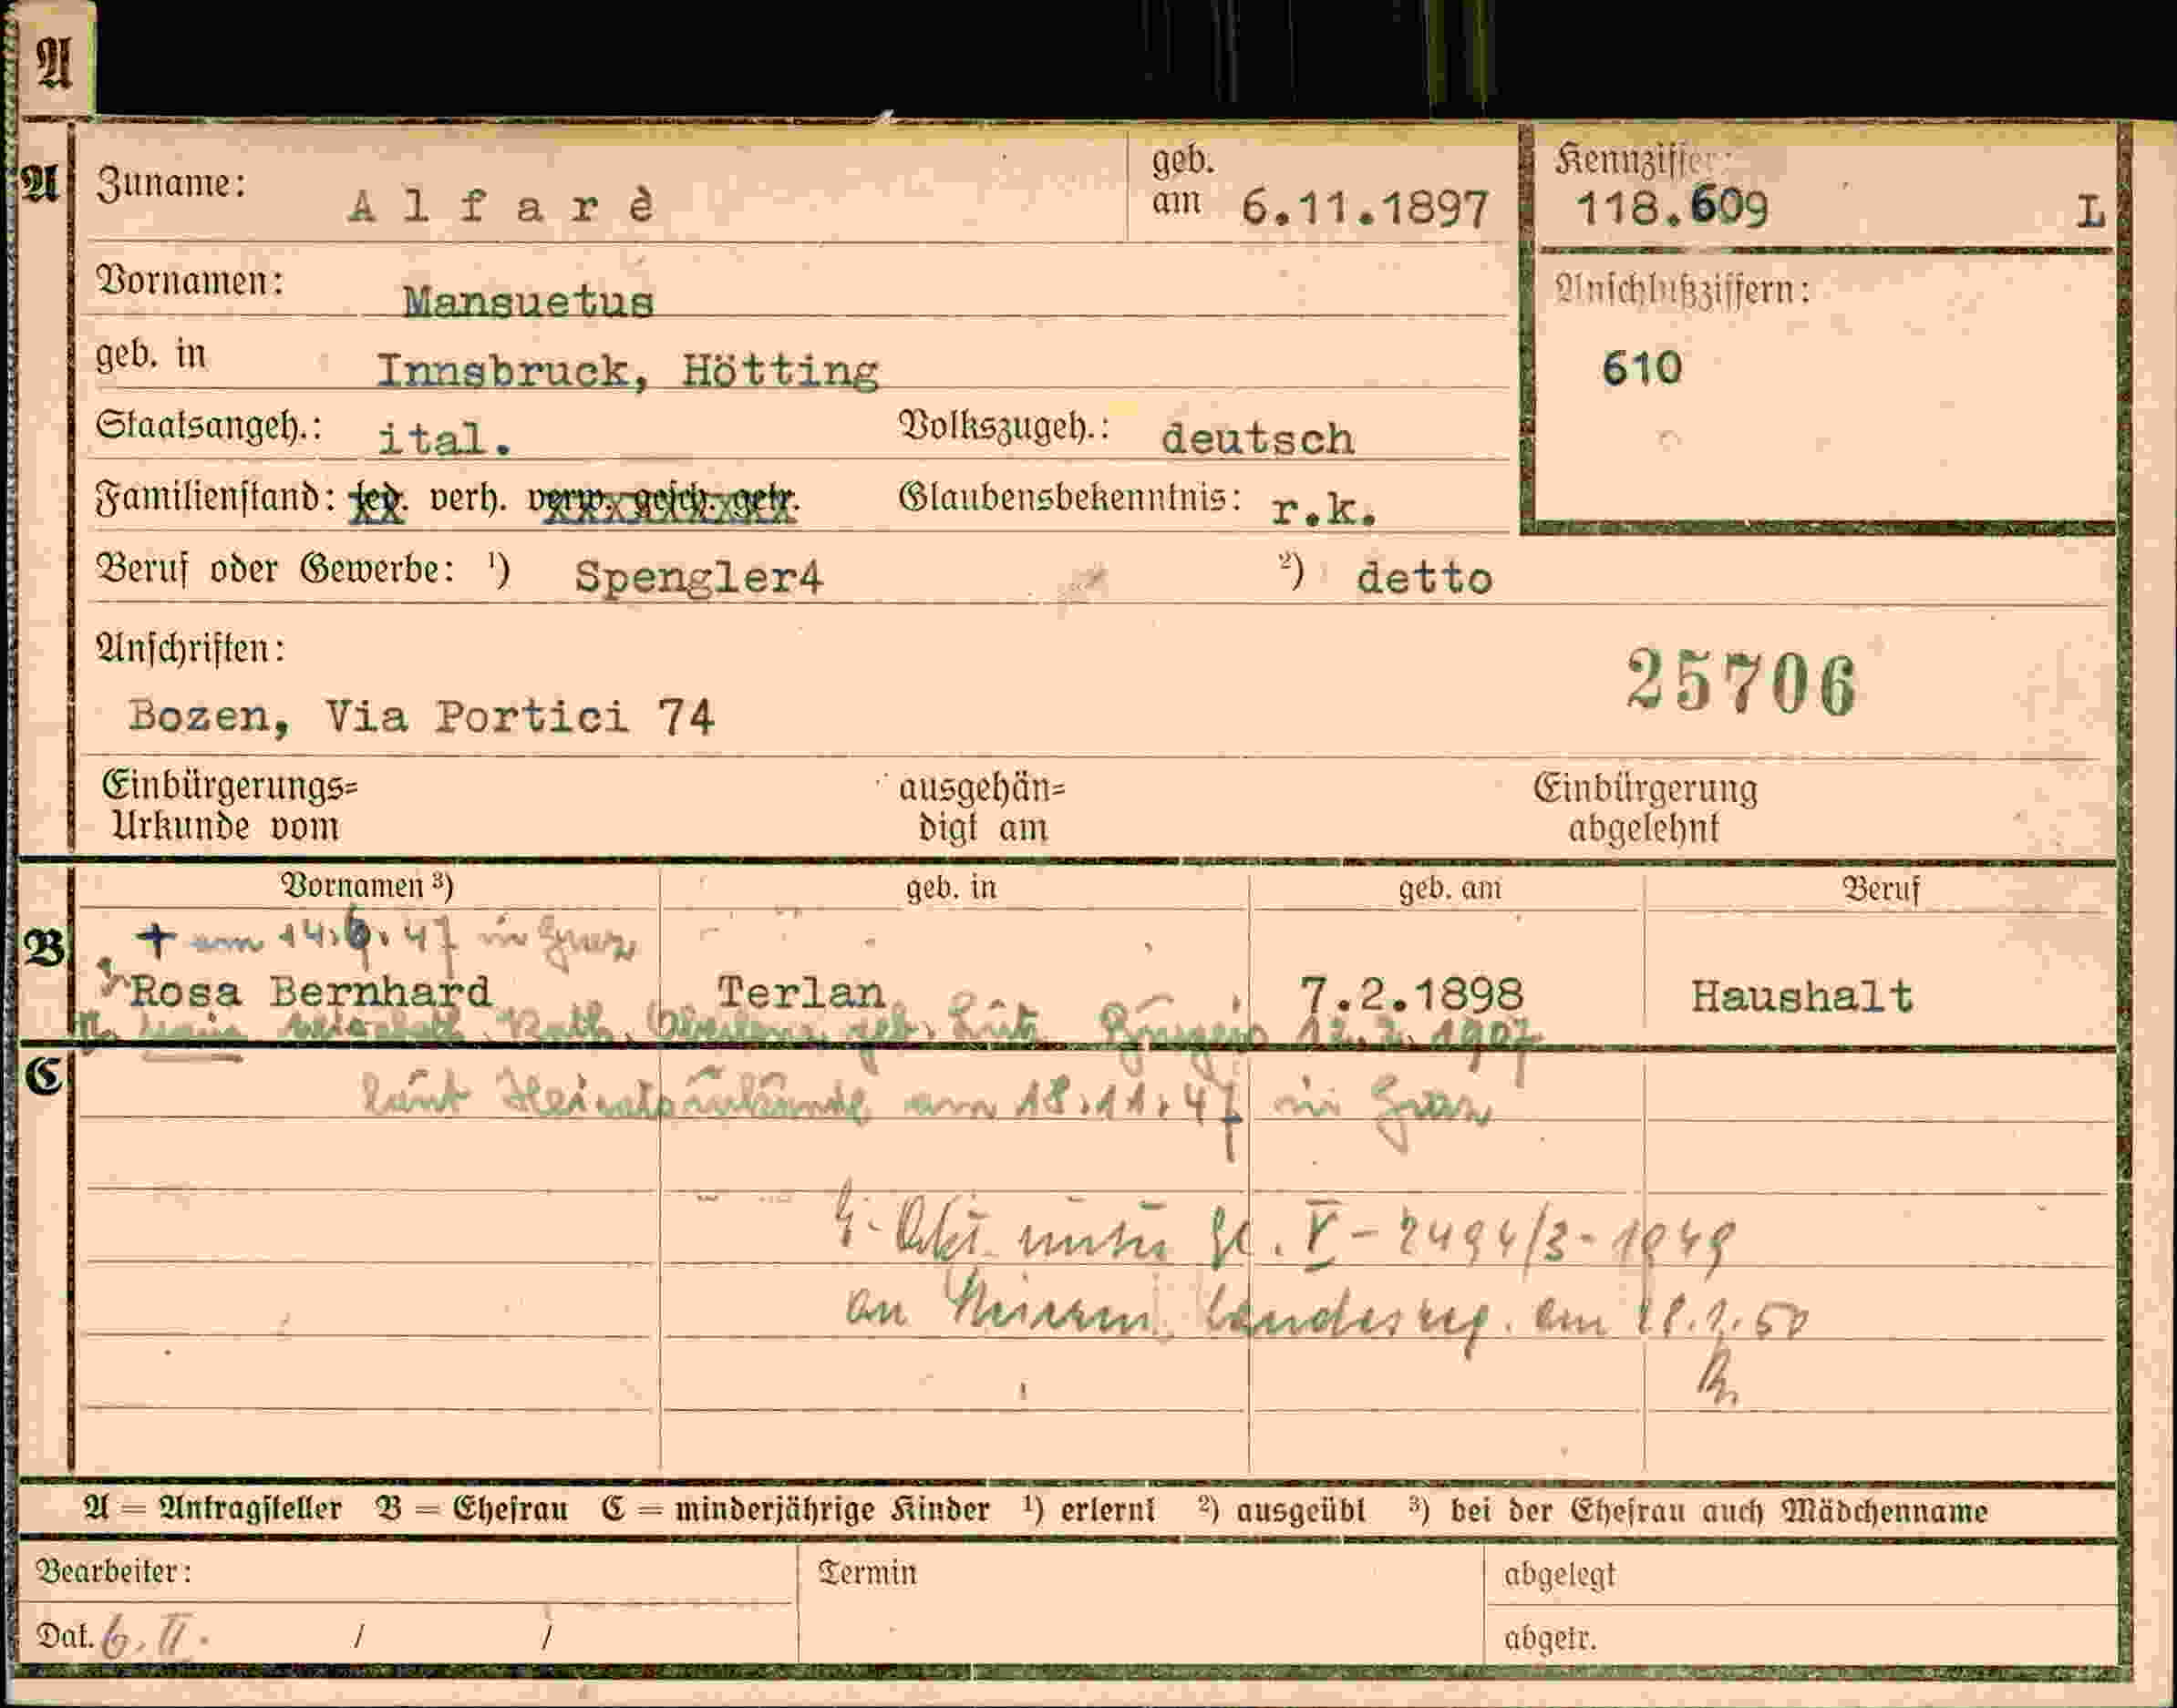 A
A Zuname: Alfarè geb. am 6.11.1897 Kennziffer: 118.609 L
Vornamen: Mansuetus Anschlußziffern:
geb. in Innsbruck, Hötting 610
Staatsangeh.: ital. Volkszugeh.: deutsch
Familienstand: led. verh. verw. gesch. getr. Glaubensbekenntnis: r.k.
Beruf oder Gewerbe: ¹) Spengler4 ²) detto
Anschriften: 25706
Bozen, Via Portici 74
Einbürgerungs= ausgehän= Einbürgerung
Urkunde vom digt am abgelehnt
Vornamen ³) geb. in geb. am Beruf
B + am 14.6.47 in Graz
Rosa Bernhard Terlan 7.2.1898 Haushalt
geb. 1907
C laut Heiratsurkunde am 18.11.47 in Graz
E-Akt unter Zl. V-2494/3-1949
an Landesreg. am 28.1.50
A = Antragsteller B = Ehefrau C = minderjährige Kinder ¹) erlernt ²) ausgeübt ³) bei der Ehefrau auch Mädchenname
Bearbeiter: Termin abgelegt
Dat. 6. II. / / abgetr.